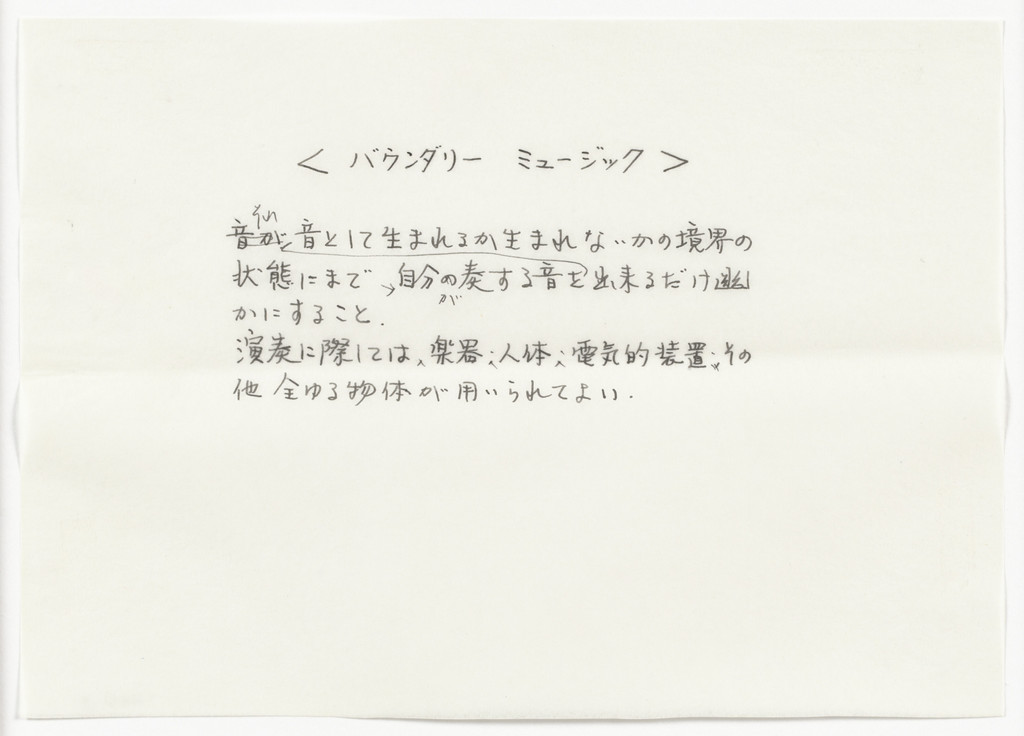 ＜ バウンダリー　ミュージック ＞
それ
音が音として生まれるか生まれないかの境界の
状態にまで自分の奏する音を出来るだけ幽
が
かにすること.
演奏に際しては、楽器、人体、電気的装置、その
他 全ゆる物体が用いられてよい.